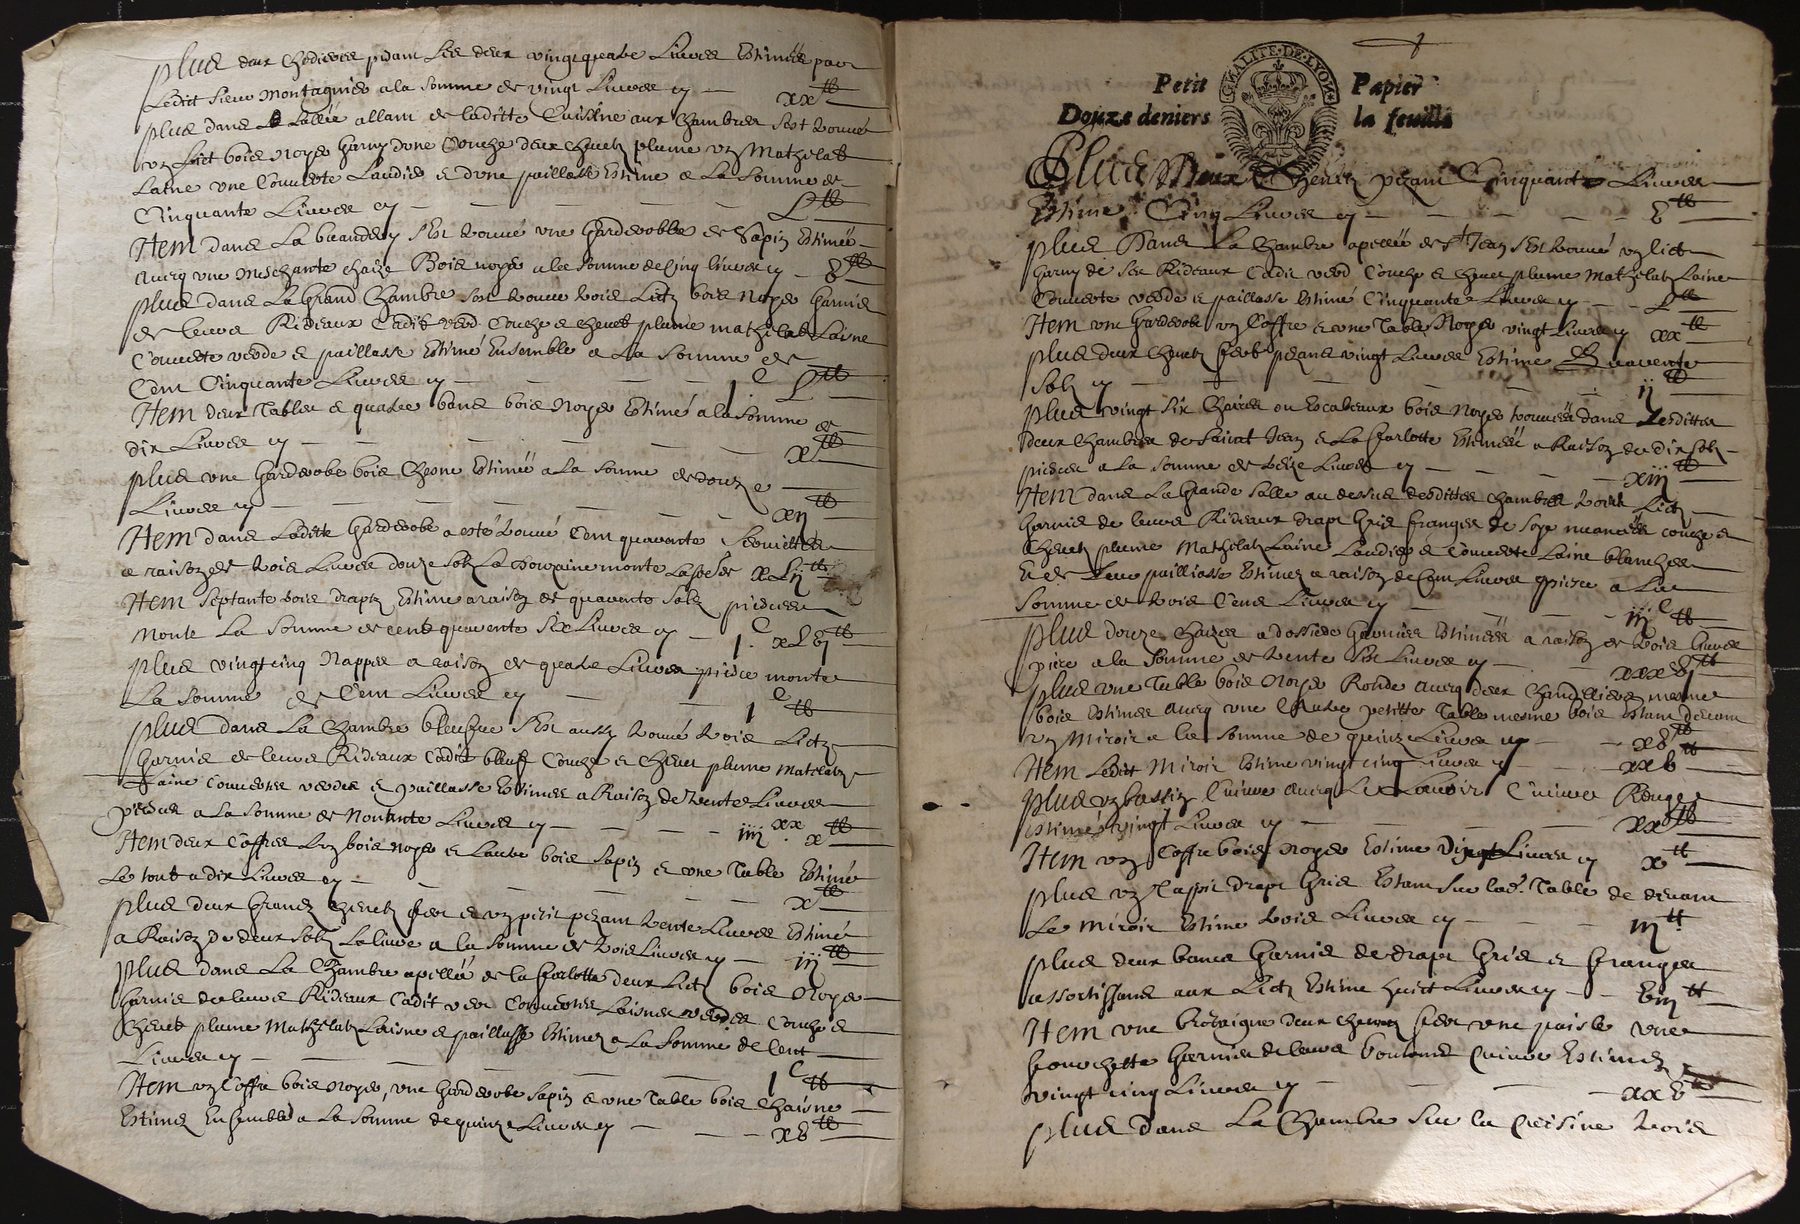 plus deux chedieres pezant les deux vingt quatre Livres Estimés par
Ledit sieur Montagnier a la somme de vingt Livres cy — xx tt
plus dans L'allée allant de laditte Cuisine aux chambres s'est trouvé
un Lict bois noyer garny d'une Couche deux chevetz plume un Mathelat
Laine une Couverte Laudier et d'une paillasse Estimé a La Somme de
Cinquante Livres cy — L tt
Item dans La buandery s'est trouvé une garderobbe de Sapin Estimée
avecq une meschante chaize Bois noyer a la somme de Cinq livres cy — v tt
plus dans La Grand Chambre sest trouvé trois Lictz bois noyer Garnis
de leurs Rideaux Cadit verd Couche et chevet plume mathelat Laine
Couverte verde et paillasse Estimé Ensemble a La Somme de
Cent Cinquante Livres cy — I C L tt
Item deux Tables et quatre bans bois Noyer Estimé a la Somme de
dix Livres cy — x tt
plus une Garderobe bois Chesne Estimée a La Somme de douze
Livres cy — xij tt
Item dans Laditte Garderobe a esté trouvé Cent quarante Serviettes
a raison de trois Livres douze solz La douzaine monte La so e de xLij tt
Item Septante trois drapz Estimé a raison de quarante Solz piece
Monte La somme de cent quarante Six Livres cy — I C xLvj tt
plus vingt cinq Nappes a raison de quatre Livres piece monte
La Somme de Cent Livres cy — I C tt
plus dans La Chambre bleufve s'est aussy trouvé trois Lictz
Garnis de leurs Rideaux Cadit bleuf Couche et chevet plume Matelatz
Laine Couvertes verdes et paillasse Estimés a Raison de trente Livres
piece a La somme de Nonante Livres cy — iiij xx x tt
Item deux Coffres L'un bois noyer et L'autre bois Sapin et une Table Estimé
Le tout a dix Livres cy — x tt
plus deux Grandz chenetz fer et un petit pezant trente Livres Estimé
a Raison de deux Solz La livre a la somme de trois Livres cy — iij tt
plus dans La Chambre apellée de la Charlotte deux Lictz bois Noyer
Garnis de leurs Rideaux Cadit verd Couvertes Laisnes verdes Couche et
Chevet plume Mathelatz Laisne et paillasse Estimez a La Somme de Cent
Livres cy — I C tt
Item un Coffre bois Noyer, une Garderobe Sapin et une Table bois Chaisne
Estimez Ensemble a La Somme de quinze Livres cy — xv tt
GNALITE·DE·LYON
Petit Papier
Douze deniers la feuille
Plus Deux Chenetz pezant Cinquante Livres
Estimé Cinq Livres cy — v tt
plus Dans La Chambre apellée de St Jean s'est trouvé un lict
Garny de ses Rideaux Cadit verd Couche et chevet plume Mathelatz Laine
Couverte verde et paillasse Estimé Cinquante Livres cy — L tt
Item une Garderobe un Coffre et une Table Noyer vingt Livres cy xx tt
plus deux chenetz fer pezans vingt Livres Estimé Quarante
Solz cy — ij tt
plus vingt six Chaires ou Escabeaux bois Noyer trouvés dans Lesdittes
deux chambres de Sainct Jean et La Charlotte Estimées a Raison de dix solz
piece a La somme de treize Livres cy — xiij tt
Item dans La Grande Salle au dessus desdittes chambres trois Lictz
Garnis de leurs Rideaux drapt Gris franges de Soye nuancées couche et
Chevetz plume Mathelatz Laine Laudier et Couverte Laine blanche
Et de Leur pailliasse Estimez a raison de Cent Livres piece a La
Somme de trois Cens Livres cy — iij C tt
plus douze Chaizes a dossiers Garnies Estimées a raison de trois Livres
piece a la Somme de trente six Livres cy — xxxvj tt
plus une Table bois Noyer Ronde avecq deux chandelliers mesme
bois Estimés avecq une Autre petitte Table mesme bois Estant devant
un Miroir a la somme de quinze Livres cy — xv tt
Item Ledit Miroir Estimé vingt cinq Livres cy — xxv tt
plus un bassin Cuivre avecq Le Lavoir Cuivre Rouge
Estimé vingt Livres cy — xx tt
Item un Coffre bois noyer Estimé Livres cy x tt
plus un Tappit drapt Gris Estant sur lad. Table de devant
Le Miroir Estimé trois Livres cy — iij tt
plus deux bancs Garnis de drapt Gris et franges
assortissans aux Lictz Estimé huict Livres cy — viij tt
Item une deux chenetz fer une paisle une
fourchette Garnies de leurs boutons Cuivre Estimez
vingt cinq Livres cy — xxv tt
plus dans La Chambre Sur la Cuisine trois